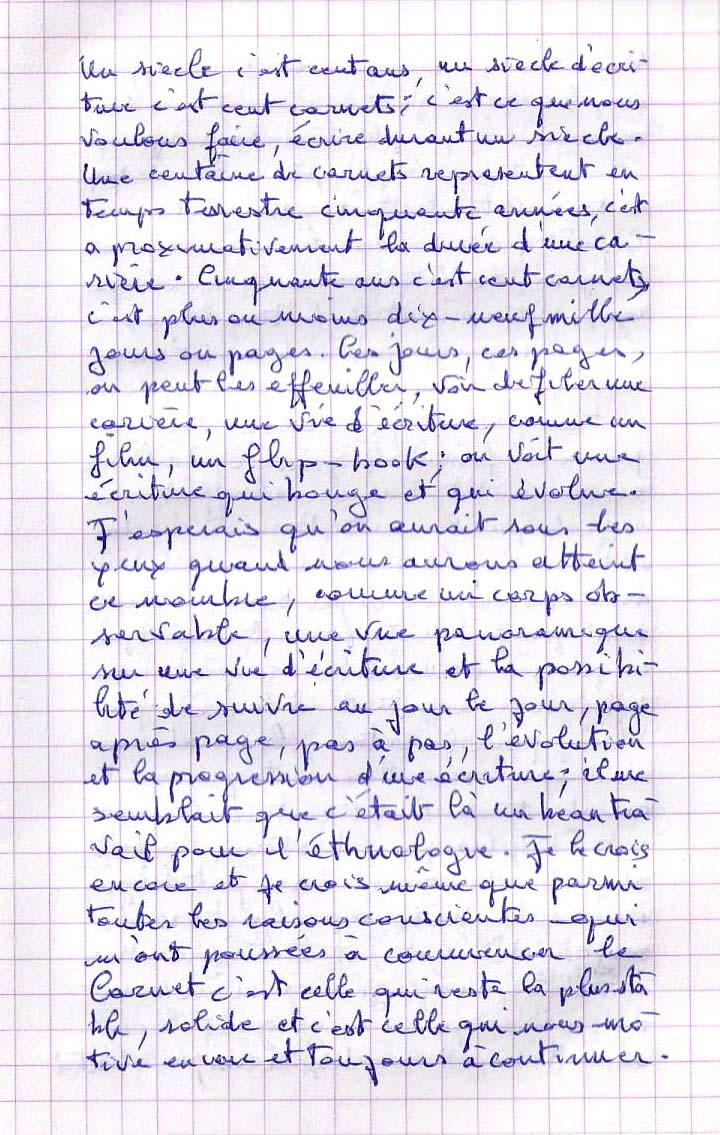 Un siècle c'est cent ans, un siècle d'écri-
ture c'est cent carnets; c'est ce que nous
voulons faire, écrire durant un siècle.
Une centaine de carnets representent en
temps terrestre cinquante années, c'est
a proximativement la durée d'une ca-
rière. Cinquante ans c'est cent carnets,
c'est plus ou moins dix-neuf mille
jours ou pages. Ces jours, ces pages,
on peut les effeuiller, voir defiler une
carière, une vie d'écriture, comme un
film, un flip-book; on voit une
écriture qui bouge et qui évolue.
J'esperais qu'on aurait sous les
yeux quand nous aurons atteint
ce nombre, comme un corps ob-
servable, une vue panoramique
sur une vie d'écriture et la possibi-
lité de suivre au jour le jour, page
après page, pas à pas, l'évolution
et la progression d'une écriture; il me
semblait que c'était là un beau tra
vail pour l'éthnologue. Je le crois
encore et je crois même que parmi
toutes les raisons conscientes qui
m'ont poussées à commencer le
Carnet c'est celle qui reste la plus sta
ble, solide et c'est celle qui nous mo
tive encore et toujours à continuer.